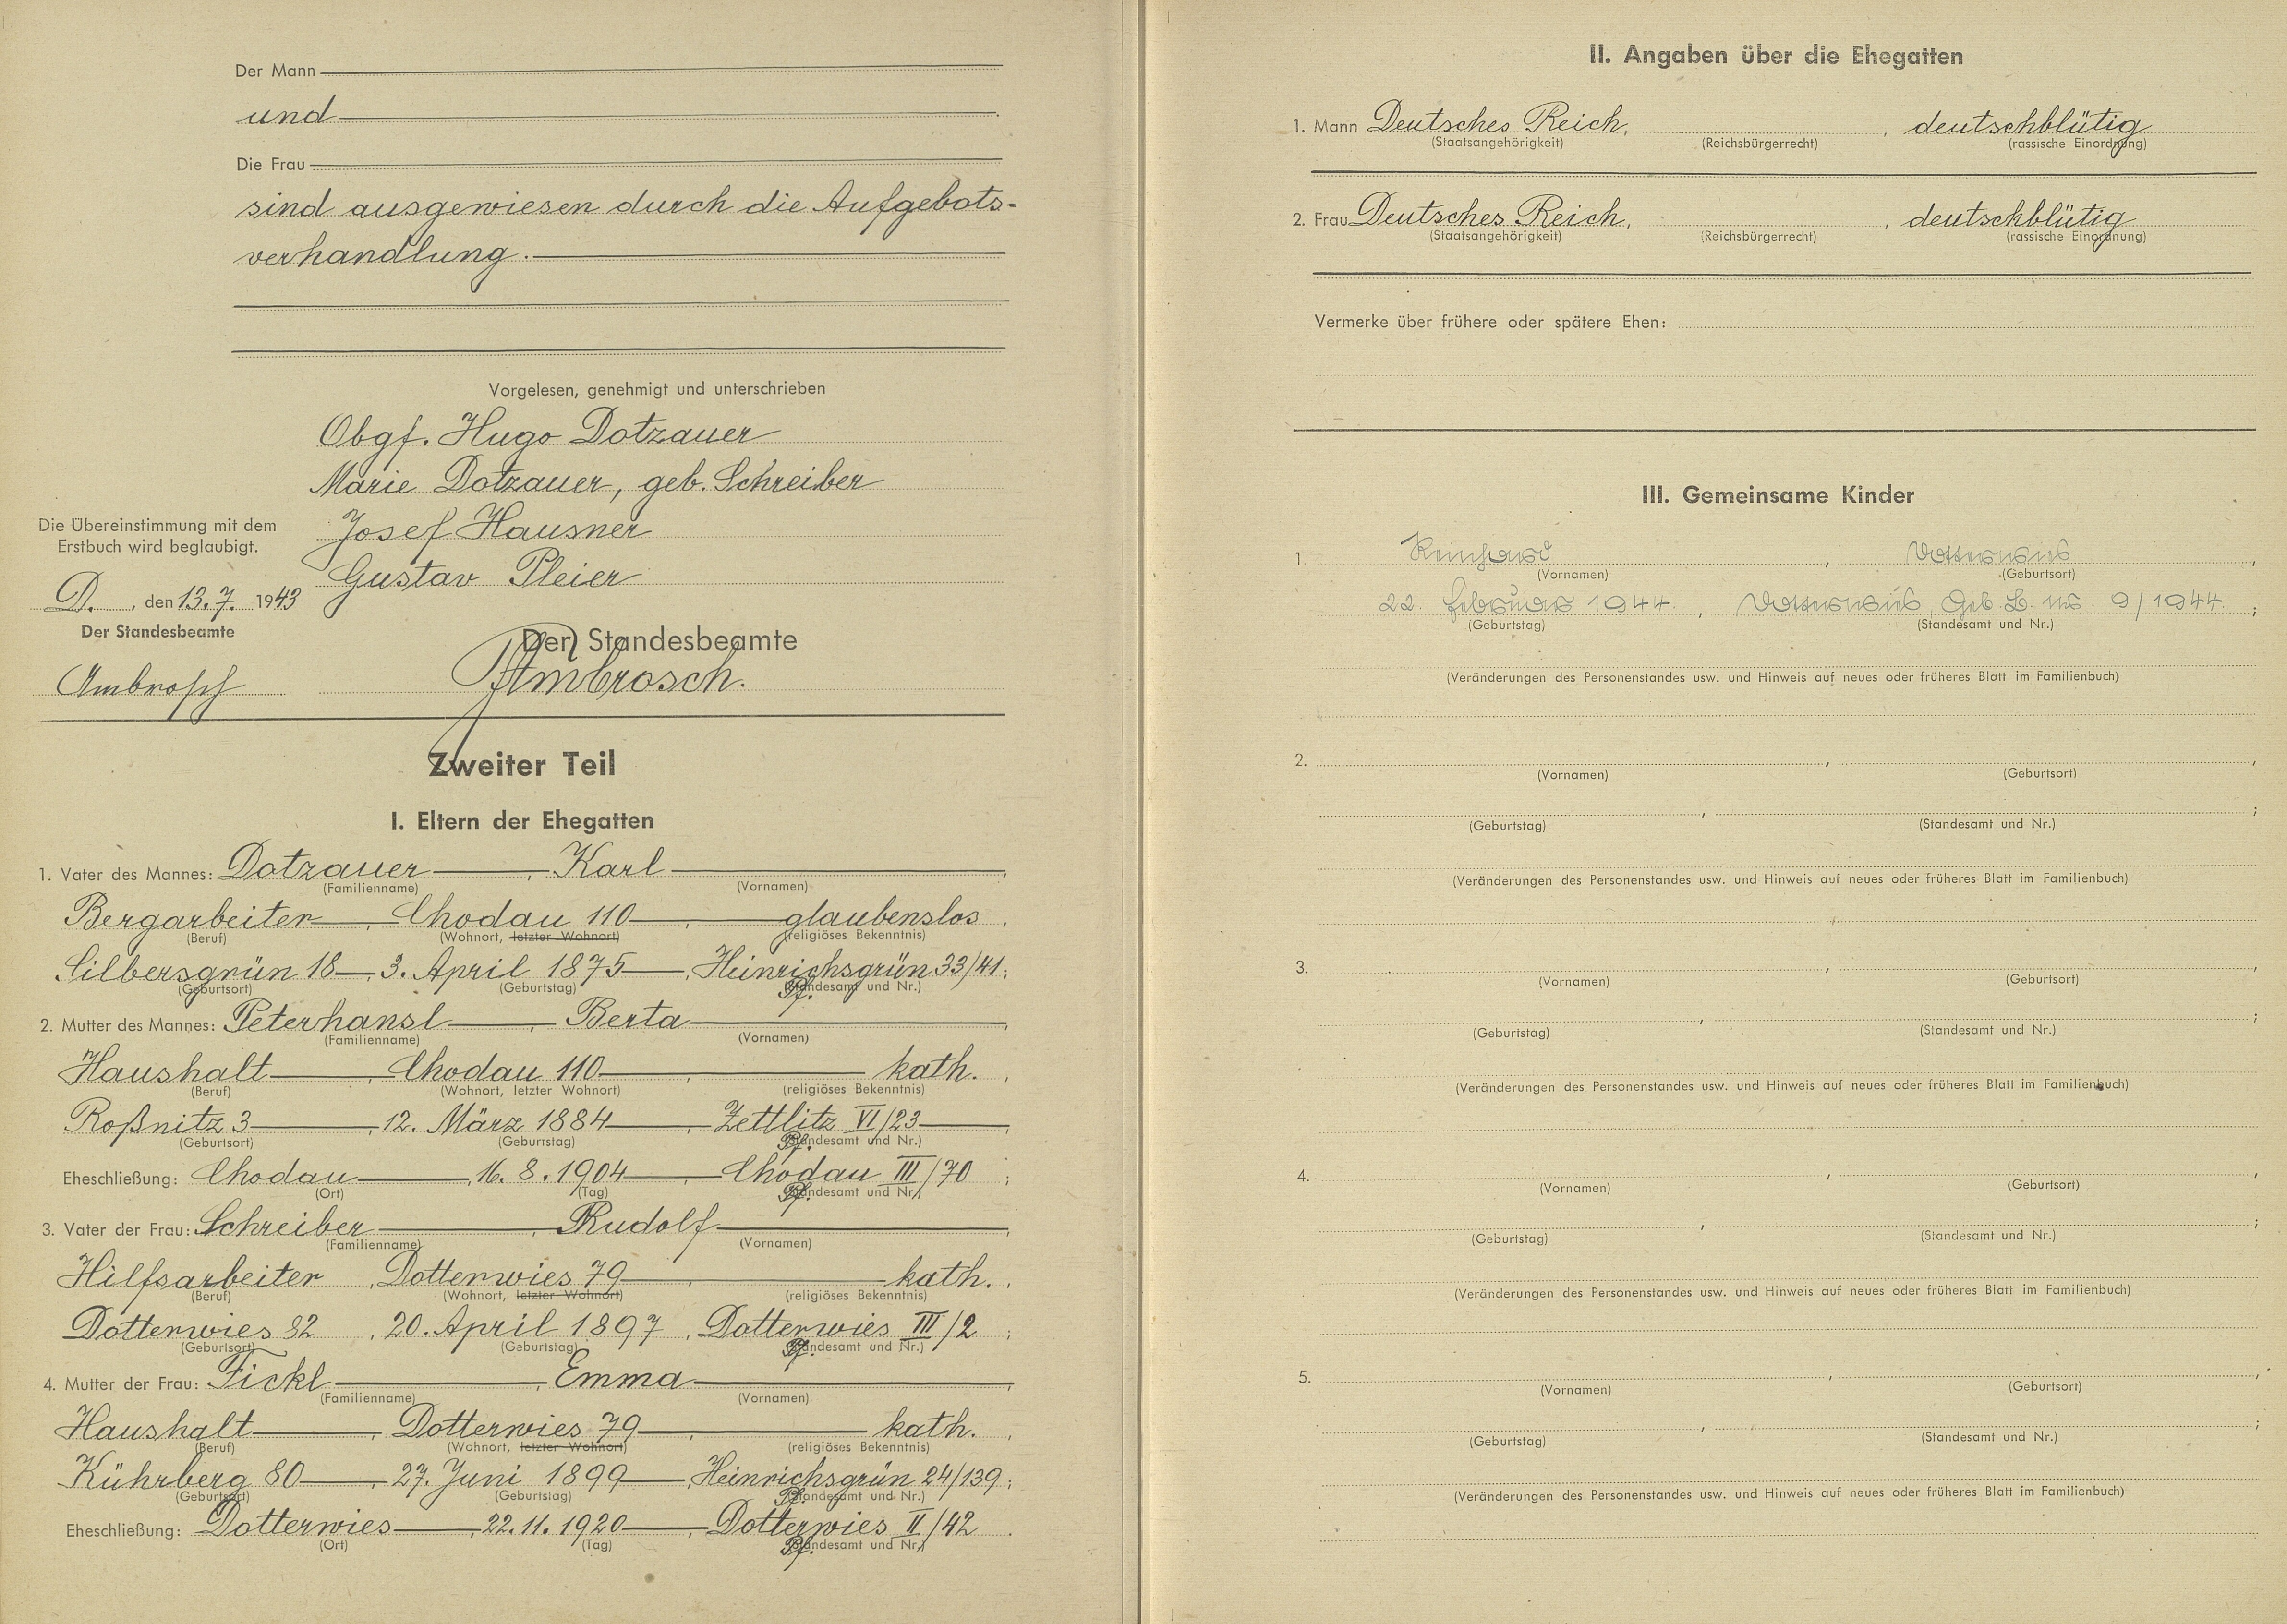 Der Mann
und
Die Frau
sind ausgewiesen durch die Aufgebots-
verhandlung.
Vorgelesen, genehmigt und unterschrieben
Obgf. Hugo Dotzauer
Marie Dotzauer, geb. Schreiber
Josef Hausner
Gustav Pleier
Die Übereinstimmung mit dem
Erstbuch wird beglaubigt.
D. , den 13.7. 1943
Der Standesbeamte
Ambrosch
Der Standesbeamte
Ambrosch.
Zweiter Teil
I. Eltern der Ehegatten
1. Vater des Mannes: Dotzauer , Karl ,
(Familienname) (Vornamen)
Bergarbeiter , Chodau 110 , glaubenslos ,
(Beruf) (Wohnort, letzter Wohnort) (religiöses Bekenntnis)
Silbersgrün 18 , 3. April 1875 , Heinrichsgrün 33/41 ;
(Geburtsort) (Geburtstag) Pf. (Standesamt und Nr.)
2. Mutter des Mannes: Peterhansl , Berta ,
(Familienname) (Vornamen)
Haushalt , Chodau 110 , kath. ,
(Beruf) (Wohnort, letzter Wohnort) (religiöses Bekenntnis)
Roßnitz 3 , 12. März 1884 , Zettlitz VI/23 ,
(Geburtsort) (Geburtstag) Pf. (Standesamt und Nr.)
Eheschließung: Chodau , 16. 8. 1904 , Chodau III/70 ;
(Ort) (Tag) Pf. (Standesamt und Nr.)
3. Vater der Frau: Schreiber , Rudolf ,
(Familienname) (Vornamen)
Hilfsarbeiter , Dotterwies 79 , kath. ,
(Beruf) (Wohnort, letzter Wohnort) (religiöses Bekenntnis)
Dotterwies 82 , 20. April 1897 , Dotterwies III/2 ;
(Geburtsort) (Geburtstag) Pf. (Standesamt und Nr.)
4. Mutter der Frau: Fickl , Emma ,
(Familienname) (Vornamen)
Haushalt , Dotterwies 79 , kath. ,
(Beruf) (Wohnort, letzter Wohnort) (religiöses Bekenntnis)
Kührberg 80 , 27. Juni 1899 , Heinrichsgrün 24/139 ;
(Geburtsort) (Geburtstag) Pf. (Standesamt und Nr.)
Eheschließung: Dotterwies , 22. 11. 1920 , Dotterwies II/42 .
(Ort) (Tag) Pf. (Standesamt und Nr.)
II. Angaben über die Ehegatten
1. Mann Deutsches Reich, , deutschblütig
(Staatsangehörigkeit) (Reichsbürgerrecht) (rassische Einordnung)
2. Frau Deutsches Reich, , deutschblütig
(Staatsangehörigkeit) (Reichsbürgerrecht) (rassische Einordnung)
Vermerke über frühere oder spätere Ehen:
III. Gemeinsame Kinder
1 Reinhard , Dotterwies ,
(Vornamen) (Geburtsort)
22. Februar 1944. , Dotterwies Geb. B. Nr. 9/1944. ;
(Geburtstag) (Standesamt und Nr.)
(Veränderungen des Personenstandes usw. und Hinweis auf neues oder früheres Blatt im Familienbuch)
2. , ,
(Vornamen) (Geburtsort)
, ;
(Geburtstag) (Standesamt und Nr.)
(Veränderungen des Personenstandes usw. und Hinweis auf neues oder früheres Blatt im Familienbuch)
3. , ,
(Vornamen) (Geburtsort)
, ;
(Geburtstag) (Standesamt und Nr.)
(Veränderungen des Personenstandes usw. und Hinweis auf neues oder früheres Blatt im Familienbuch)
4. , ,
(Vornamen) (Geburtsort)
, ;
(Geburtstag) (Standesamt und Nr.)
(Veränderungen des Personenstandes usw. und Hinweis auf neues oder früheres Blatt im Familienbuch)
5. , ,
(Vornamen) (Geburtsort)
, ;
(Geburtstag) (Standesamt und Nr.)
(Veränderungen des Personenstandes usw. und Hinweis auf neues oder früheres Blatt im Familienbuch)